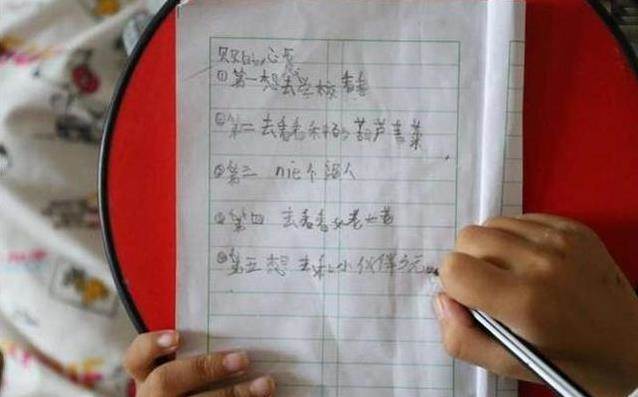 贝贝的心愿
①第一想去学校看看
②第二去看看种的葫芦青菜
③第三 nie个泥人
④第四 去看看女老世界
⑤第五想去和小伙伴多元